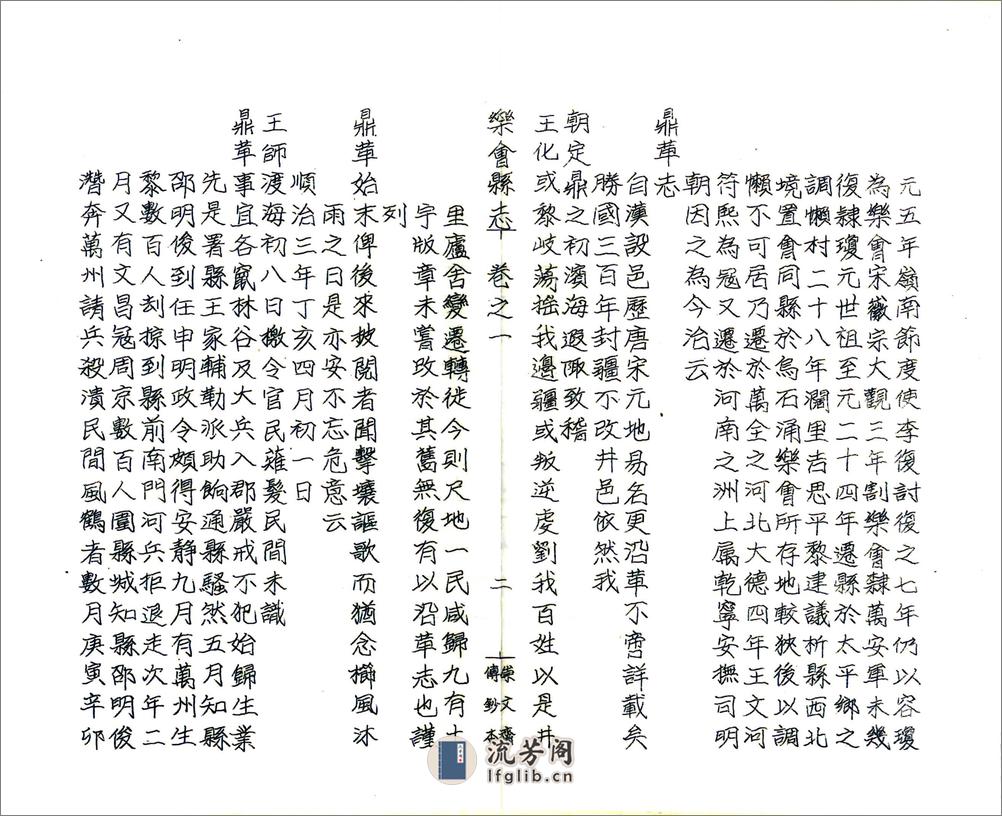 元五年嶺南節度使李復討復之七年仍以容瓊
為樂會宋徽宗大觀三年割樂會隸萬安軍未幾
復隸瓊元世祖至元二十四年遷縣於太平鄉之
調懶村二十八年濶里吉思平黎建議析縣西北
境置會同縣於烏石涌樂會所存地較狹後以調
懶不可居乃遷於萬全之河北大德四年王文河
符熙為冦又遷於河南之洲上属乾寧安撫司明
朝因之為今治云
鼎革志
自漢設邑歷唐宋元地易名更沿革不啻詳載矣
勝國三百年封疆不改井邑依然我
朝定鼎之初濱海遐陬致稽
王化或黎岐蕩摇我邊疆或叛逆虔劉我百姓以是井
樂會縣志 卷之一 二 崇文齋傳鈔本
里廬舍變遷轉徒今則尺地一民咸歸九有土
宇版章未嘗改於其舊無復有以沿革志也謹
列
鼎革始末俾後來披閱者聞擊壤謳歌而猶念櫛風沐
雨之日是亦安不忘危意云
順治三年丁亥四月初一日
王師渡海初八日檄令官民薙髮民間未識
鼎革事宜各竄林谷及大兵入郡嚴戒不犯始歸生業
先是署縣王家輔勤派助餉通縣騷然五月知縣
邵明俊到任申明政令頗得安静九月有萬州生
黎數百人刦掠到縣前南門河兵拒退走次年二
月又有文昌冦周京數百人圍縣城知縣邵明俊
濳奔萬州請兵殺潰民間風鶴者數月庚寅辛卯
流芳阁
lfglib.cn